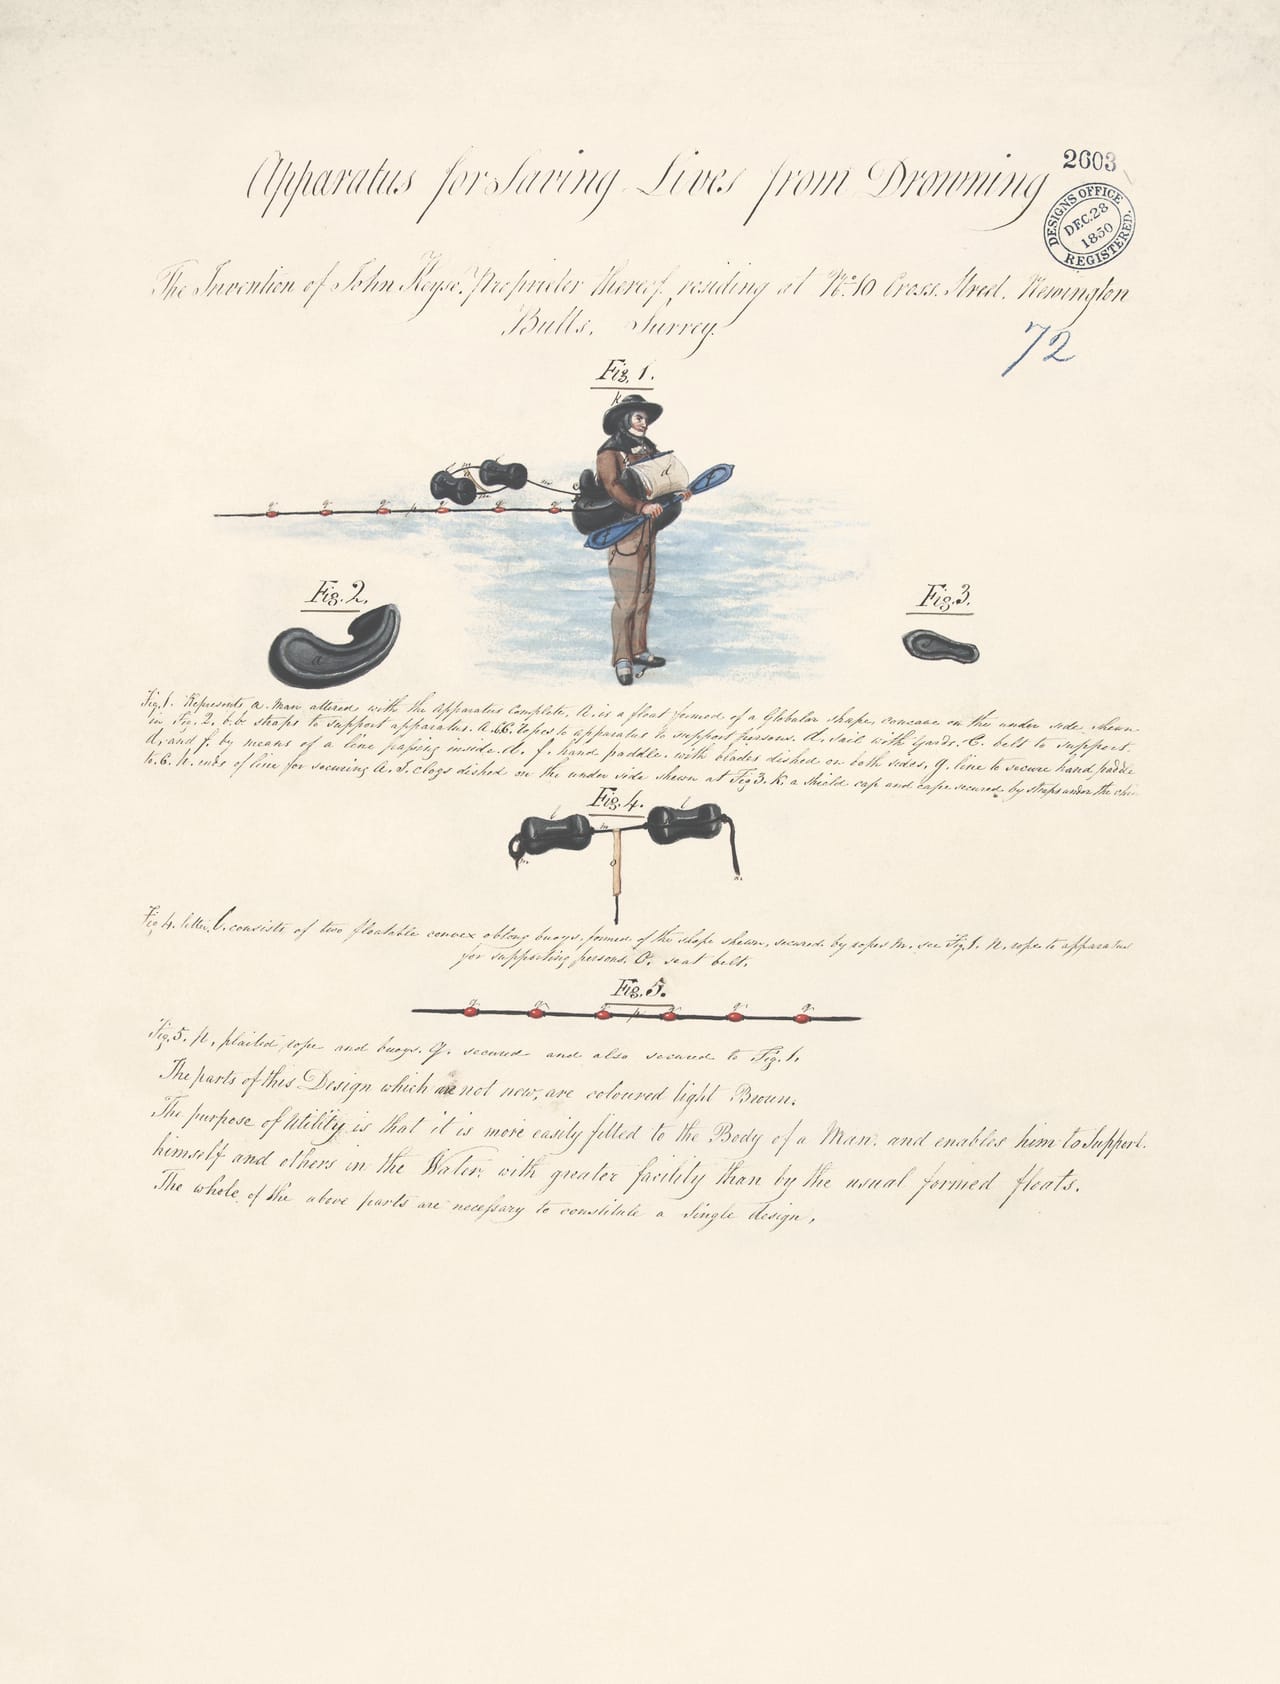 2603
Apparatus for Saving Lives from Drowning
DESIGNS OFFICE
DEC. 28
1850
REGISTERED.
The Invention of John Keyse. Proprietor thereof, residing at No. 10 Cross Street. Newington
Butts. Surrey.
72
Fig. 1.
k
d
m
n
f
q q q p q q q
Fig. 2.
a
Fig. 3.
Fig. 1. Represents a Man attired with the Apparatus Complete, A. is a float formed of a Globular Shape, concave on the under side shewn
in Fig. 2, b.b. straps to support apparatus. A. ropes to apparatus to support persons. d. sail with yards. e. belt to support.
d, and f. by means of a line passing inside. d. f. hand paddle. with blades dished on both sides. g. line to secure hand paddle
h. ends of line for securing A. J. clogs dished on the under side shewn at Fig 3. K. a shield cap and cape secured by straps under the chin
Fig. 4.
l m l
n. o n.
Fig 4. letter l. consists of two floatable convex oblong buoys, formed of the shape shewn, secured by ropes m. see Fig 1. n. rope to apparatus
for supporting persons. O. seat belt.
Fig. 5.
q q q p q q q
Fig. 5. p, plaited rope and buoys. q. secured and also secured to Fig. 1.
The parts of this Design which are not new, are coloured light Brown.
The purpose of Utility is that it is more easily fitted to the Body of a Man. and enables him to Support.
himself and others in the Water, with greater facility than by the usual formed floats.
The whole of the above parts are necessary to constitute a single design.